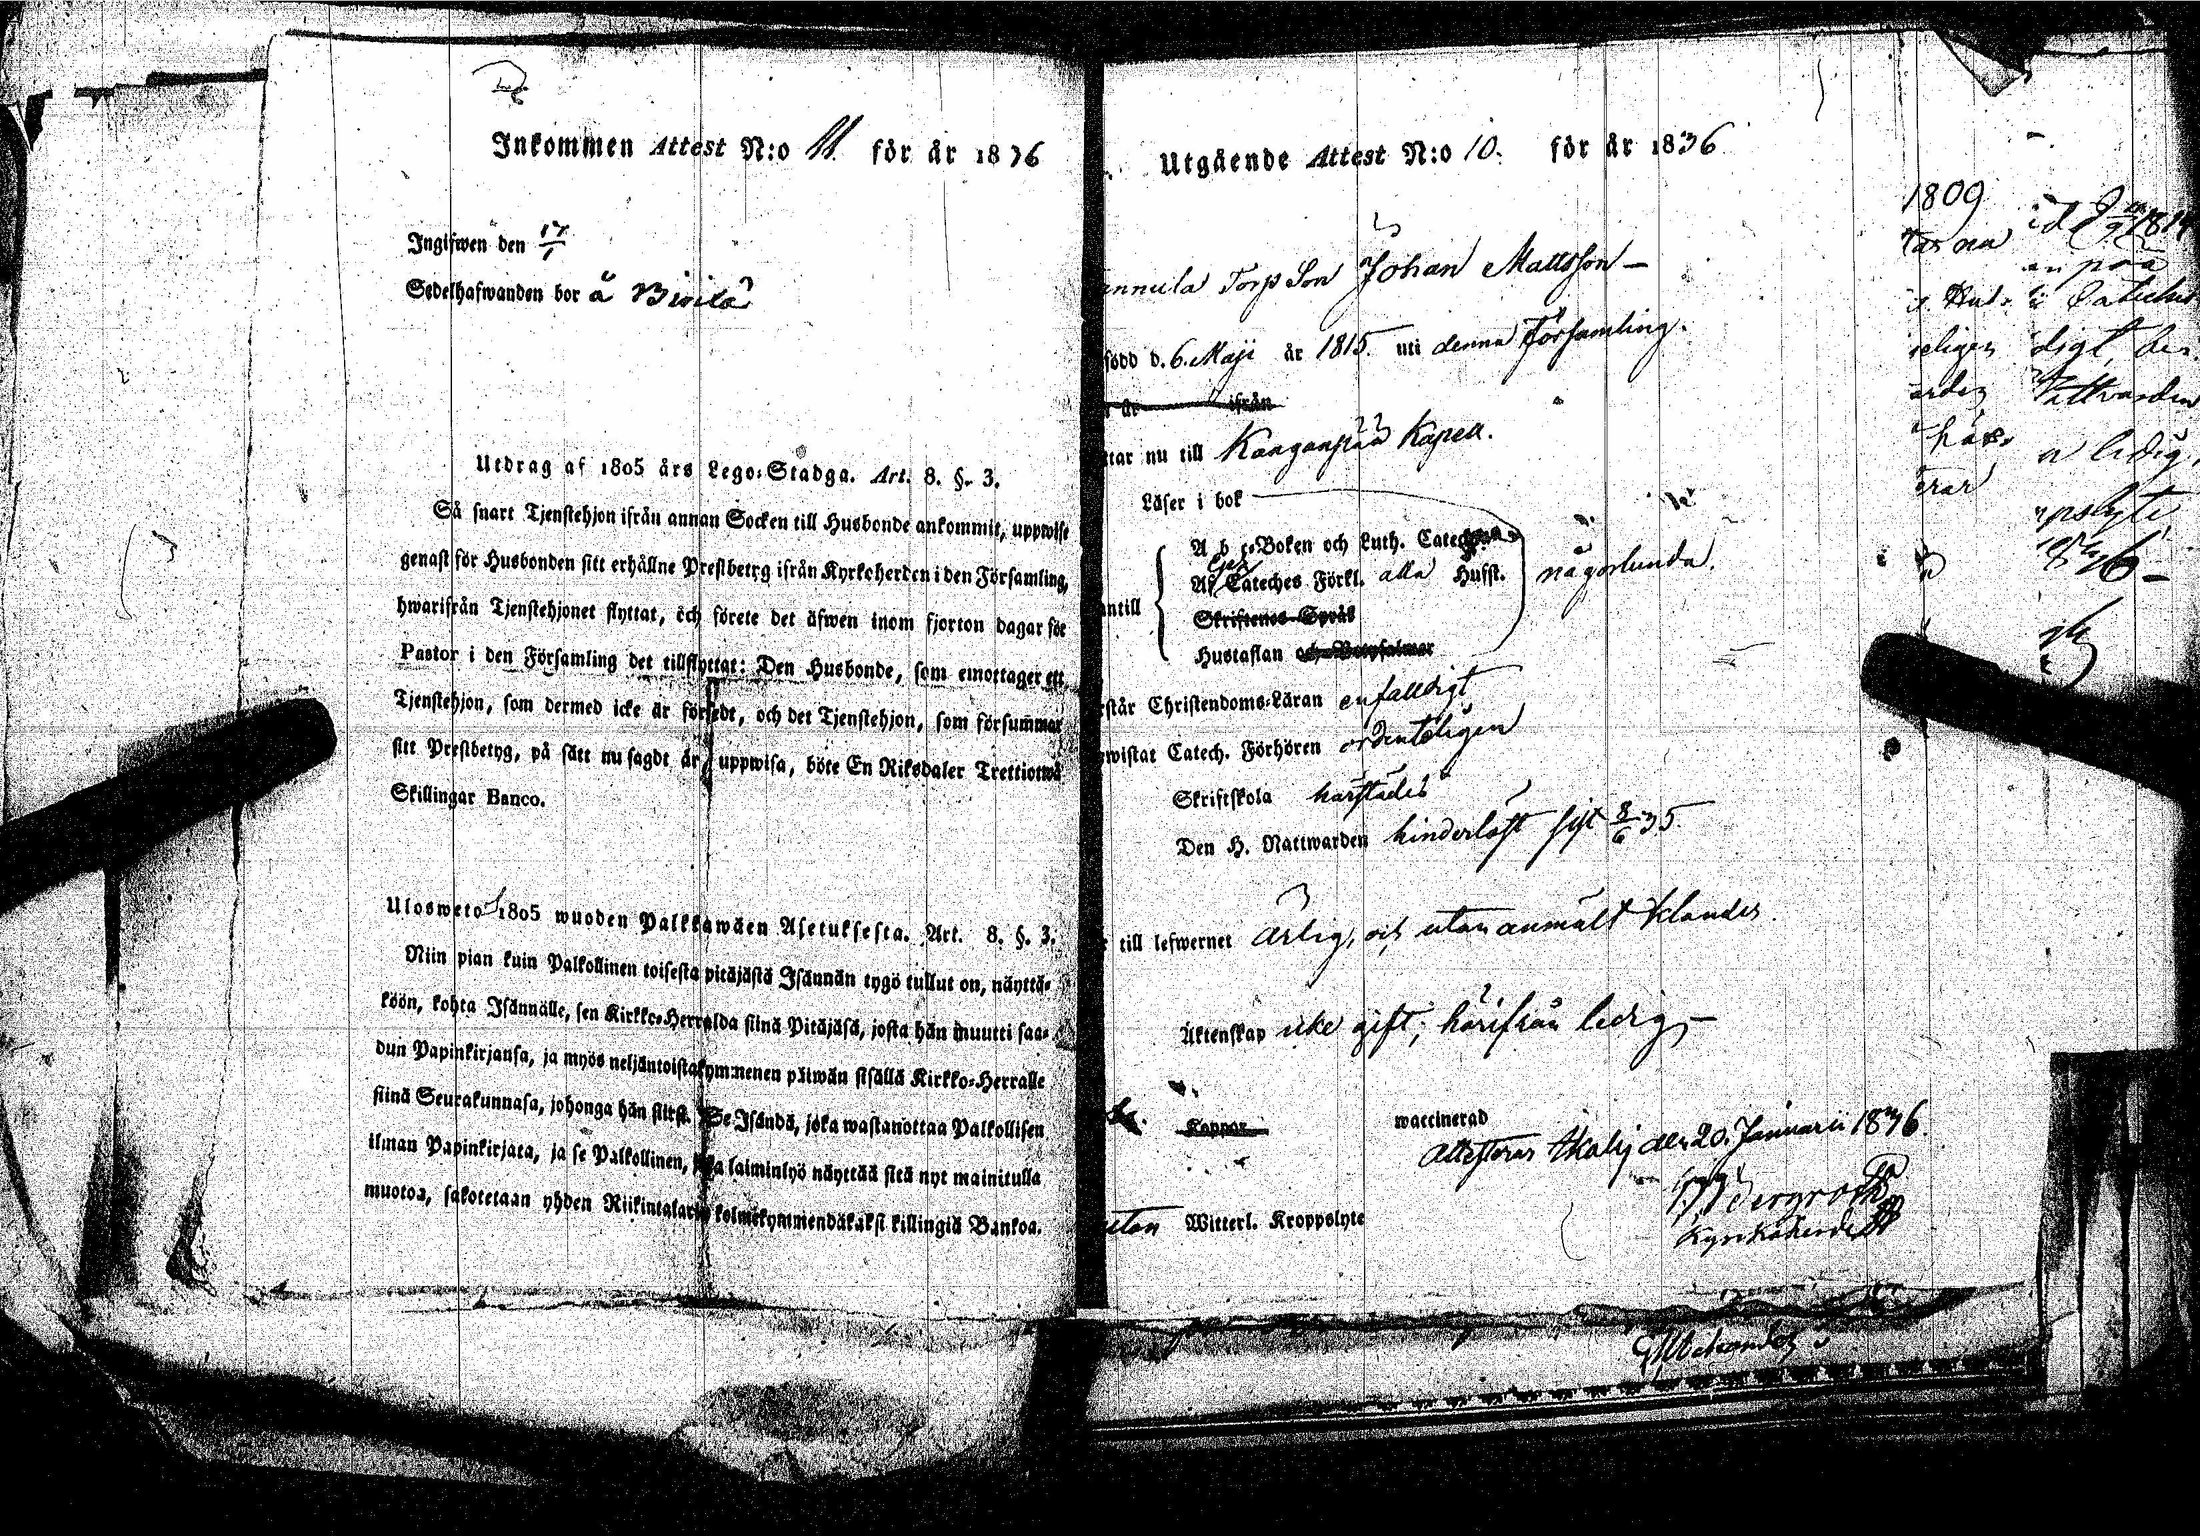 Inkommen Attest N:o 11. för år 1836
Ingifwen den 17/1
Sedelhafwanden bor å
Utdrag af 1805 års Lego-Stadga. Art. 8. §. 3.
Så snart Tjenstehjon ifrån annan Socken till Husbonde ankommit, uppwise
genast för Husbonden sitt erhållne Prestbetyg ifrån Kyrkoherden i den Församling,
hwarifrån Tjenstehjonet flyttat, och förete det äfwen inom fjorton dagar för
Pastor i den Församling det tillflyttat: Den Husbonde, som emottager ett
Tjenstehjon, som dermed icke är försedt, och det Tjenstehjon, som försummar
sitt Prestbetyg, på sätt nu sagdt är, uppwisa, böte En Riksdaler Trettiotwå
Skillingar Banco.
Ulosweto 1805 wuoden Palkkawäen Asetuksesta. Art. 8. §. 3.
Niin pian kuin Palkollinen toisesta pitäjästä Isännän tygö tullut on, näyttä-
köön, kohta Isännälle, sen Kirkko-Herralda siinä Pitäjäsä, josta hän muutti saa-
dun Papinkirjansa, ja myös neljäntoistakymmenen päiwän sisällä Kirkko-Herralle
siinä Seurakunnasa, johonga hän siirsi. Se Isändä, joka wastanottaa Palkollisen
ilman Papinkirjata, ja se Palkollinen, joka laiminlyö näyttää sitä nyt mainitulla
muotoa, sakotetaan yhden Riikintalarin kolmekymmendäkaksi killingiä Bankoa.
Utgående Attest N:o 10. för år 1836
annula Torp Son Johan Mattsson
född d. 6. Maji år 1815. uti denna Församling.
år ifrån
ttar nu till Kanganpää Kapell.
Läser i bok
A b c-Boken och Luth. Cateches
Af Cateches Förkl. alla Husst. någorlunda.
antill
Skriftenes Språk
Hustaflan och Botpsalmer
rstår Christendoms-Läran enfaldigt
wistat Catech. Förhören ordenteligen
Skriftskola härstädes
Den H. Nattwarden hinderlöst sist 8/6 35.
till lefwernet ärlig, och utan anmält klander.
Äktenskap icke gift; härifrån ledig,
Koppor waccinerad
Attesteras den 20. Januarii 1836.
Bergroth
Kyrkoherde
utan Witterl. Kroppslyte
1809
ligt, be
Nattvarden
ledig
1836